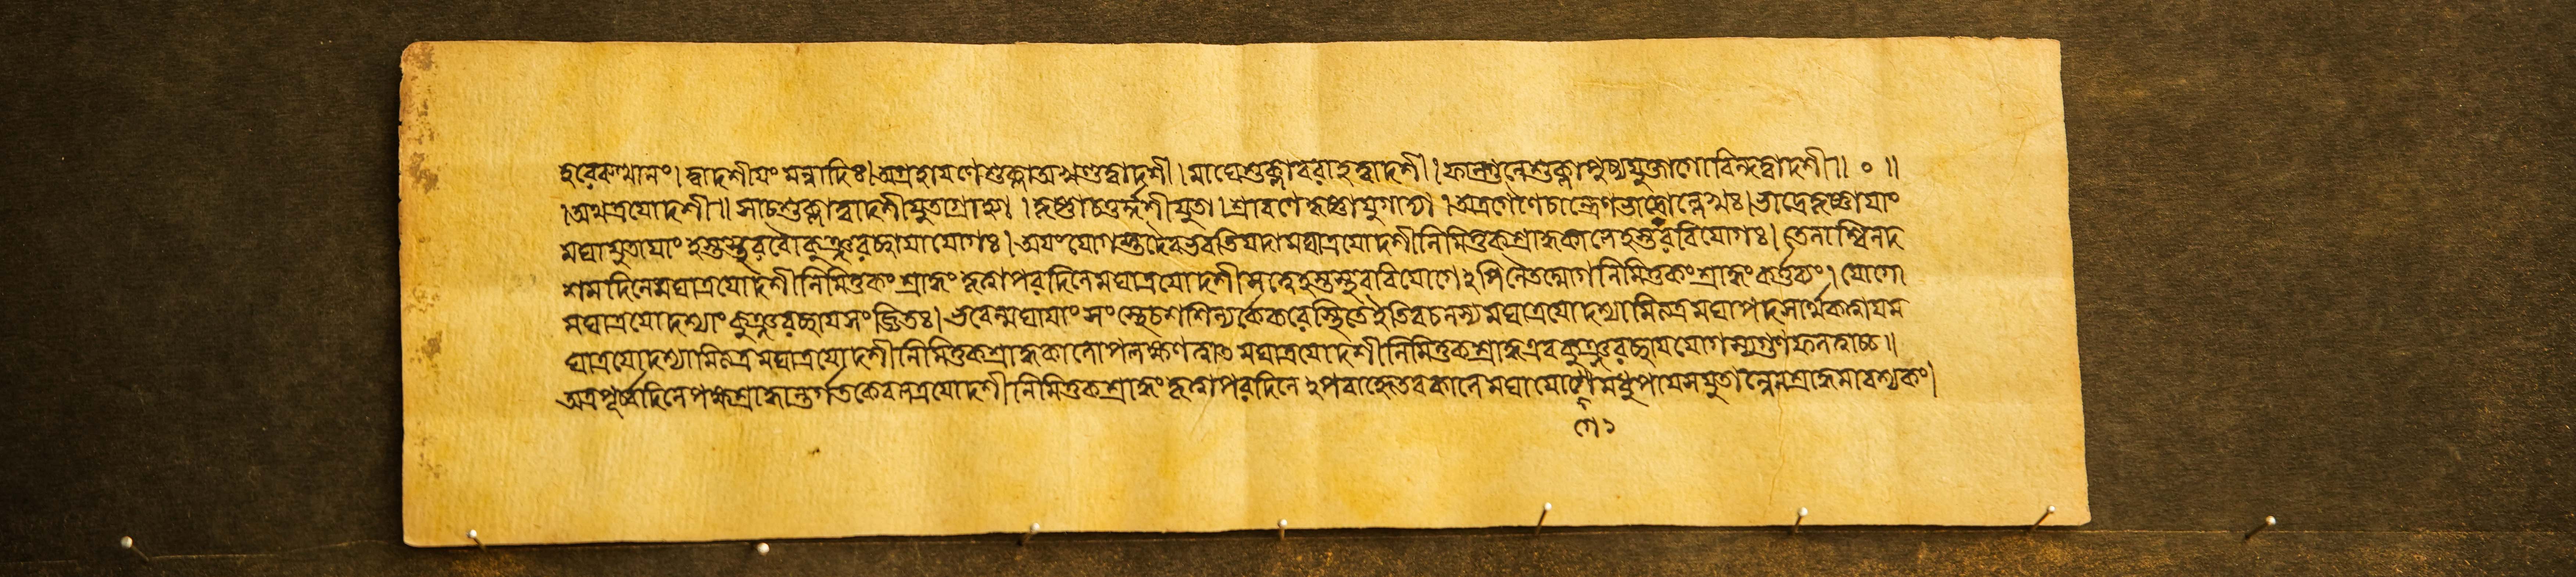 হরেরুত্থানং। দ্বাদশীয়ং মন্বাদিঃ। অগ্রহায়ণে শুক্লা অখণ্ডদ্বাদশী। মাঘে শুক্লা বরাহদ্বাদশী। ফাল্গুনে শুক্লা পুষ্যযুক্তা গোবিন্দদ্বাদশী॥ ০ ॥
।অথ ত্রয়োদশী॥ সা চ শুক্লা দ্বাদশীযুতা গ্রাহ্যা। কৃষ্ণা চতুর্দ্দশীযুতা। শ্রাবণে কৃষ্ণা যুগাদ্যা। ভাদ্রে কৃষ্ণায়াং
মঘাযুতায়াং কুঞ্জরচ্ছায়াযোগঃ। অয়ং যোগস্তদৈব ভবতি যদা মঘাত্রয়োদশীনিমিত্তকশ্রাদ্ধকালে হস্তে রবিযোগঃ। তেনাশ্বিনদ
শমদিনে মঘাত্রয়োদশীনিমিত্তকং শ্রাদ্ধং কৃত্বা পরদিনে মঘাত্রয়োদশী নিমিত্তকং শ্রাদ্ধং কর্ত্তব্যং। যোগো
মঘাত্রয়োদশ্যাং কুঞ্জরচ্ছায়সংজ্ঞিতঃ। ভবেন্মঘায়াং সংস্থে চ শশিন্যর্কে করে স্থিতে ইতি বচনস্য মঘাত্রয়োদশ্যামিত্যত্র মঘাপদসার্থকত্বায় ম
ঘাত্রয়োদশ্যামিত্যত্র মঘাত্রয়োদশীনিমিত্তকশ্রাদ্ধকালোপলক্ষণত্বাৎ মঘাত্রয়োদশীনিমিত্তকশ্রাদ্ধ এব কুঞ্জরচ্ছায়যোগস্য গুণফলত্বাচ্চ॥
অত্র পূর্ব্বদিনে পক্ষশ্রাদ্ধান্তর্গতকেবলত্রয়োদশীনিমিত্তকশ্রাদ্ধং কৃত্বা পরদিনে মধুপায়সযুতান্নেন শ্রাদ্ধমাবশ্যকং।